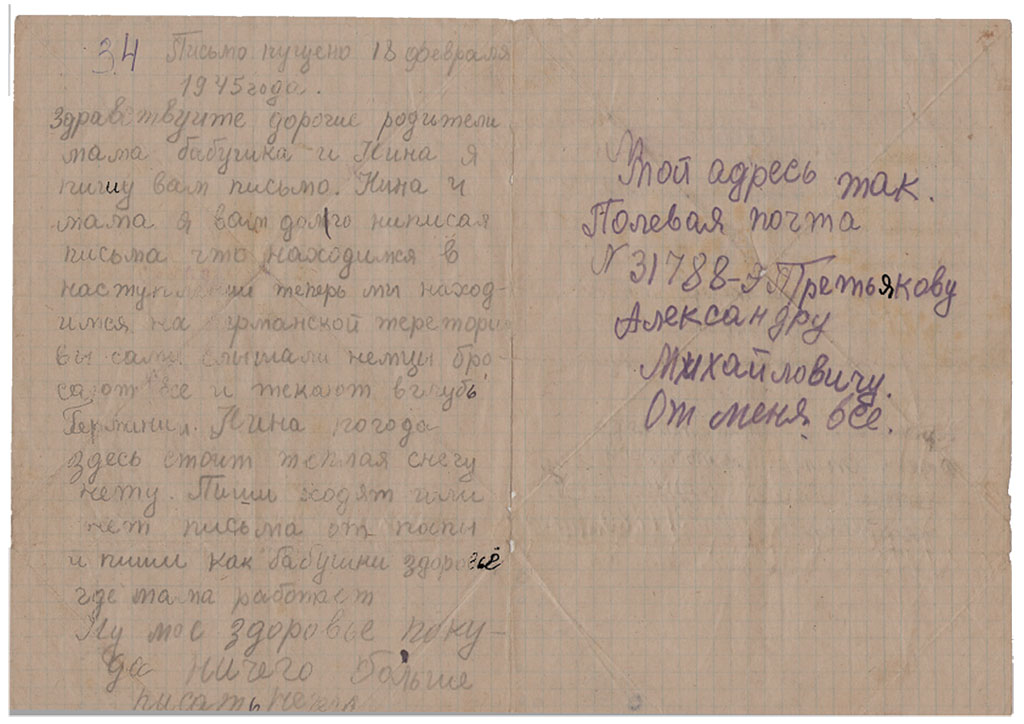 34 Письмо пущено 18 февраля
1945 года.
Здравствуйте дорогие родители
мама бабушка и Нина я
пишу вам письмо. Нина и
мама я вам долго ниписал
письма что находимся в
наступлении теперь мы наход-
имся на германской теретори
вы сами слышали немцы бро-
сают все и текают вглубь
Германия. Нина погода
здесь стоит теплая снегу
нету. Пиши ходят или
нет письма от папы
и пиши как бабушки здоровьё
где мама работает
Ну мое здоровье поку-
да ничего больше
писать
Мой адресь так.
Полевая почта
N 31788-Э Третьякову
Александру
Михайловичу.
От меня все.